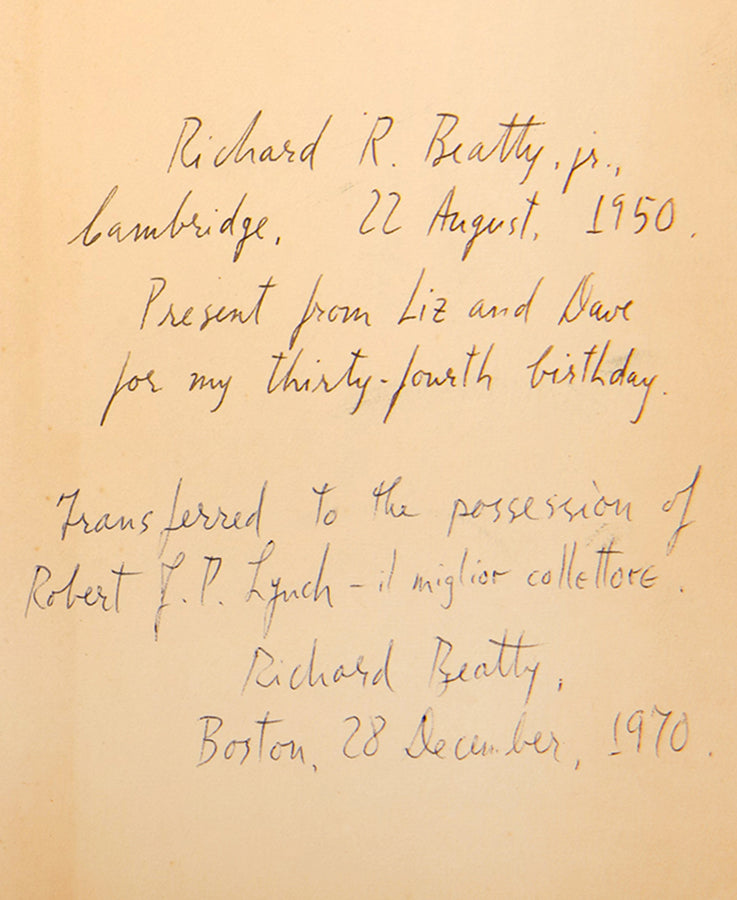 Richard R. Beatty, jr.,
Cambridge, 22 August, 1950.
Present from Liz and Dave
for my thirty-fourth birthday.
Transferred to the possession of
Robert J. P. Lynch – il miglior collettore.
Richard Beatty,
Boston, 28 December, 1970.